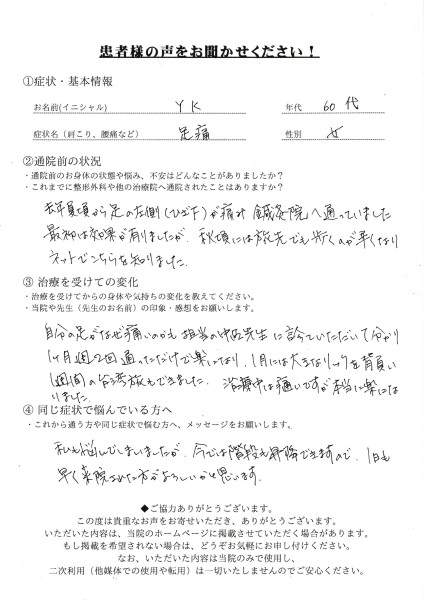 患者様の声をお聞かせください！
①症状・基本情報
お名前(イニシャル) YK 年代 60代
症状名（肩こり、腰痛など） 足痛 性別 女
②通院前の状況
・通院前のお身体の状態や悩み、不安はどんなことがありましたか？
・これまでに整形外科や他の治療院へ通院されたことはありますか？
去年夏頃から足の左側(ひざ下)が痛み 鍼灸院へ通っていました
最初は効果が有りましたが、秋頃には旅先でも歩くのが辛くなり
ネットでこちらを知りました。
③ 治療を受けての変化
・治療を受けてからの身体や気持ちの変化を教えてください。
・当院や先生（先生のお名前）の印象・感想をお願いします。
自分の足がなぜ痛いのかも 担当の中西先生に診ていただいて分かり
1ヶ月週2回通っただけで楽になり、1月には大きなリックを背負い
1週間の台湾旅もできました。 治療中は痛いですが本当に楽にな
りました。
④ 同じ症状で悩んでいる方へ
・これから通う方や同じ症状で悩む方へ、メッセージをお願いします。
私も悩んでしまいましたが、今では階段も昇降できますので、1日も
早く来院された方がよろしいかと思います。
◆ご協力ありがとうございます。
この度は貴重なお声をお寄せいただき、ありがとうございます。
いただいた内容は、当院のホームページに掲載させていただく場合があります。
もし掲載を希望されない場合は、どうぞお気軽にお申し付けください。
なお、いただいた内容は当院のみで使用し、
二次利用（他媒体での使用や転用）は一切いたしませんのでご安心ください。